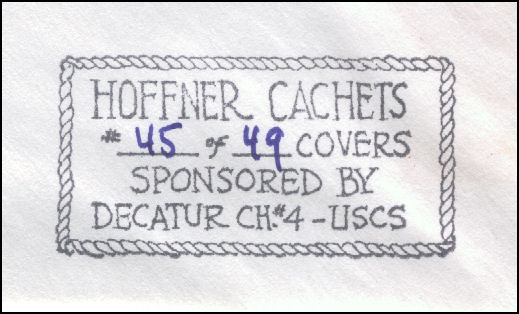 HOFFNER CACHETS
# 45 of 49 COVERS
SPONSORED BY
DECATUR CH.#4-USCS